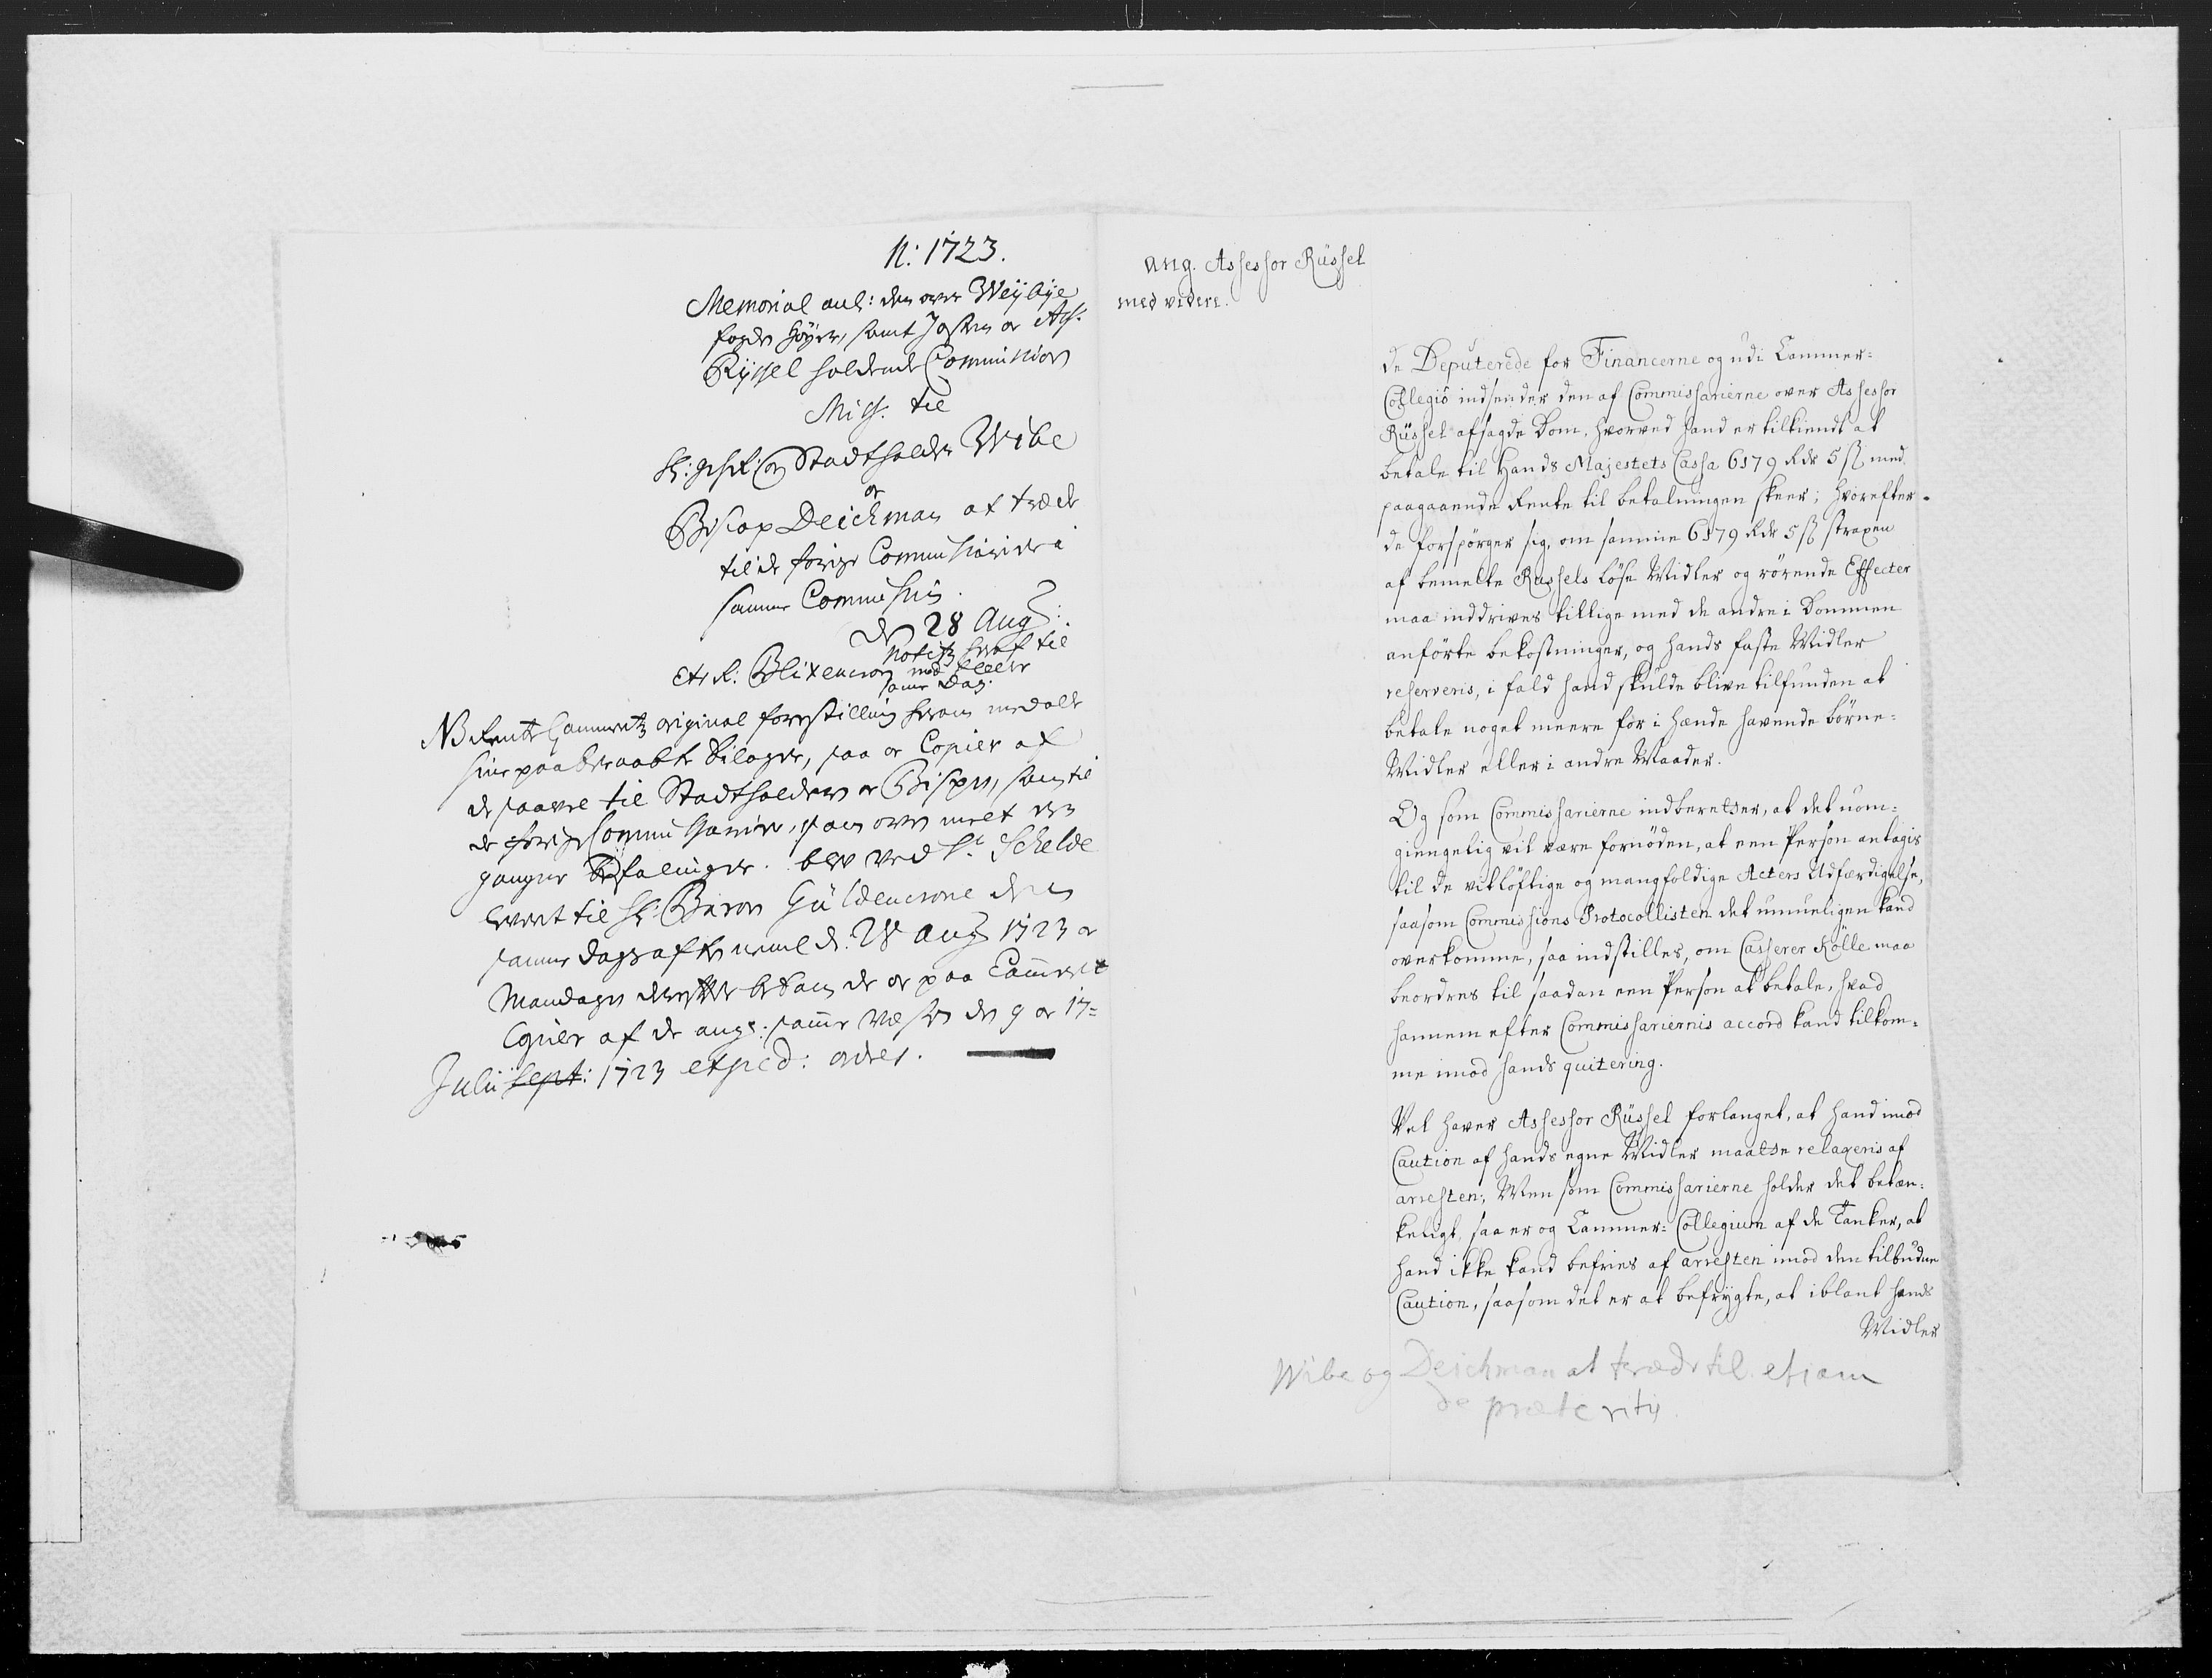 N: 1723.
Memorial anl: den over Weÿbÿe
fogden Höyer, samt Justen og Ass:
Rÿssel holdende Commission
Miss: til
H: Stadtholder Wibe
og
Biscop Deichman at træde
til de forige Commissarier i
samme Commission.
d 28 Aug:
Notitz heraf til
Etr R: Blixencron med
samme Dag.
NB Rente Cammeretz original forestilling herom med alle
sine paaberaabte bilager, saa og Copier af
de saavel til Stadtholderen og Bispen, som til
de forige Commissarier, som oven melt er
gangne Befalinger. blev ved Sr Schelde
levert til Hr: Baron Güldencrone den
samme Dags aften nemlig d. 28 Aug 1723 og
Mandagen derefter bekom de og paa Cammeret
Copier af de ang: samme Væsen den 9 og 17=
Julii Sept: 1723 exped: ordres.
Ang. Assessor Rüssel
med videre.
de Deputerede for Financerne og udi Cammer=
Collegiô indsender den af Commissarierne over Assessor
Rüssel afsagde Dom, hvorved hand er tilkiendt at
betale til Hands Majestets Cassa 6179 Rdr 5 ß med
paagaaende Rente til betalningen skeer; hvorefter
de forspörger sig, om samme 6179 Rdr 5 ß straxen
af bemelte Russels löse Midler og rörende Effecter
maa inddrives tillige med de andre i Dommen
anförte bekostninger, og hands faste Midler
reserveris, i fald hand skulde blive tilfunden at
betale noget meere for i hænde havende börne=
Midler eller i andre Maader.
Og som Commissarierne indberetter, at det uom=
giengelig vil være fornöden, at een Person antagis
til de vitlöftige og mangfoldige Acters Udfærdigelse,
saasom Commissions Protocollisten det umueligen kand
overkomme, saa indstilles, om Casserer Kölle maa
beordres til saadan een Person at betale, hvad
hannem efter Commissariernis accord kand tilkom=
me imod hands quitering.
Vel haver Assessor Rüssel forlanget, at hand imod
Caution af hands egne Midler maatte relaxeris af
arresten; Men som Commissarierne holder det betæn=
keligt, saa er og Cammer=Collegium af de Tanker, at
hand ikke kand befries af arresten imod den tilbudne
Caution, saasom det er at befrygte, at iblant hands
Midler
Wibe og Deichman at træde til etiam
de præteritis